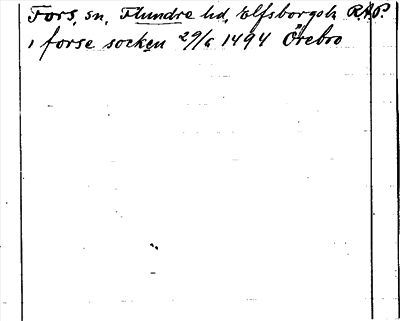 Fors, sn, Flundre hd, Elfsborgs l. RAP.
i forse socken 29/6 1494 Örebro